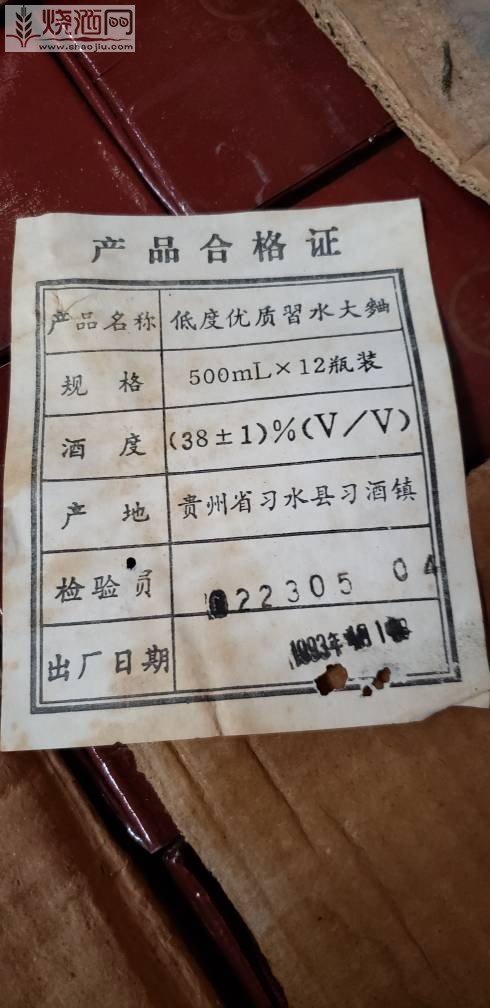 烧酒网
www.shaojiu.com
产品合格证
产品名称 低度优质習水大麯
规格 500mL×12瓶装
酒度 (38±1)%(V/V)
产地 贵州省习水县习酒镇
检验员 22305 04
出厂日期 1993年 月1